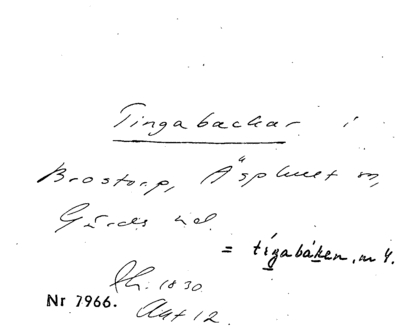 Tingabackar i
Brostorp, Äsphult sn,
Gärds hd.
= tigabáken, nr 4.
Sh. 1830
Nr 7966.
Akt 12.